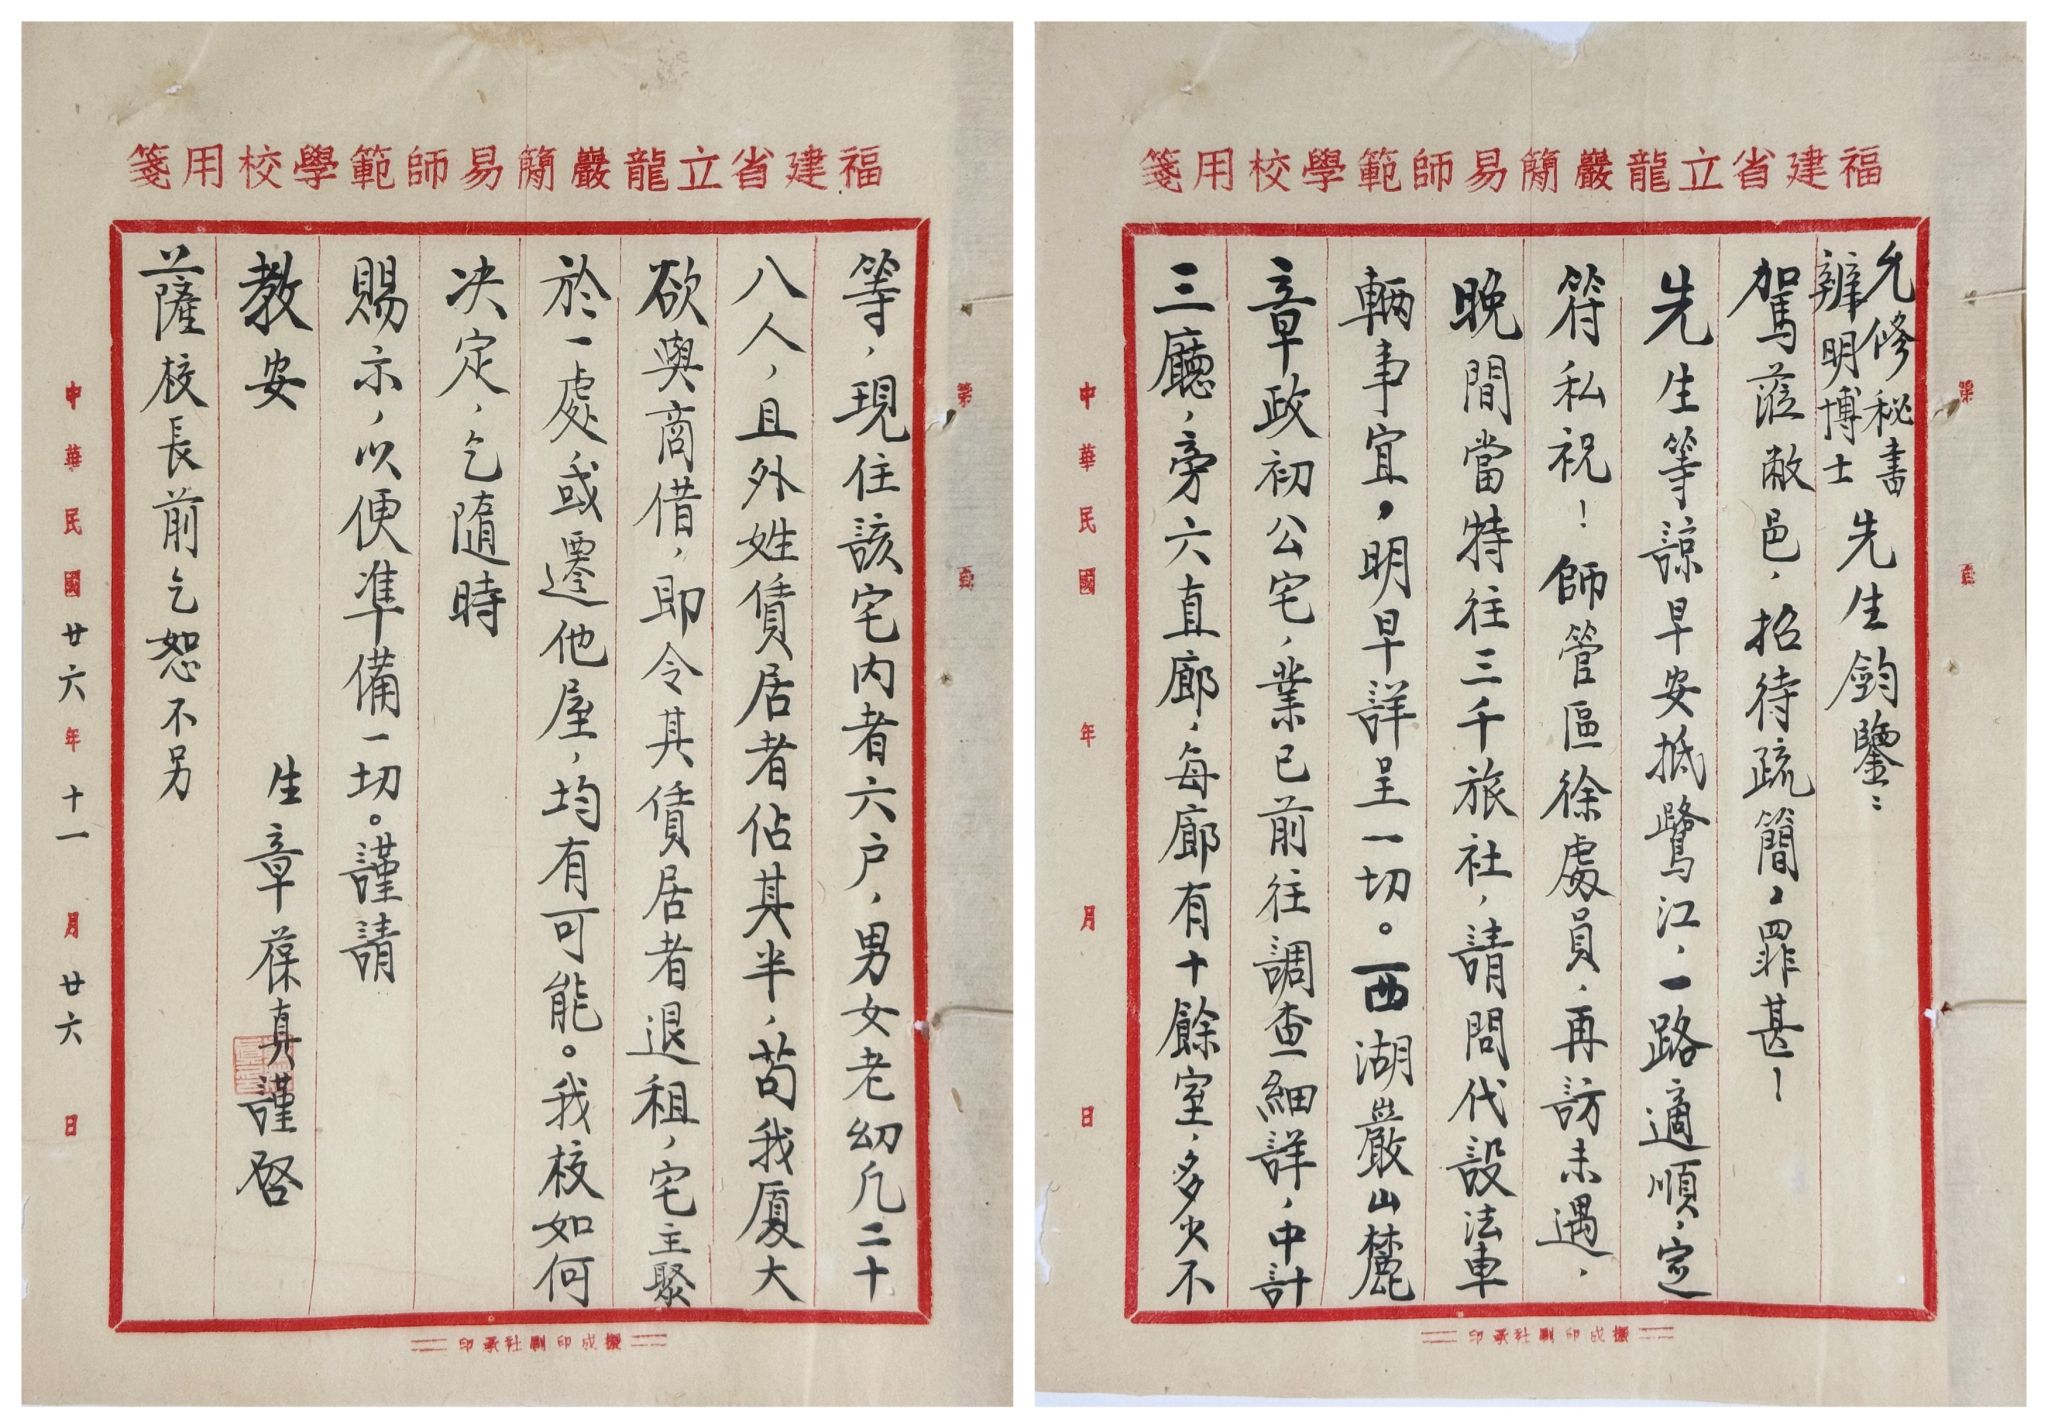 福建省立龍巖簡易師範學校用箋
允修秘書
辦明博士
先生鈞鑒：
駕蒞敝邑，招待疏簡，罪甚！
先生等諒早安抵鷺江，一路適順，定
符私祝！師管區徐處員，再訪未遇，
晚間當特往三千旅社，請問代設法車
輛事宜，明早詳呈一切。西湖巖山麓
章政初公宅，業已前往調查細詳，中計
三廳，旁六直廊，每廊有十餘室，多少不
中華民國 年 月 日
第 頁
擷成印刷社承印
福建省立龍巖簡易師範學校用箋
等，現住該宅内者六户，男女老幼凡二十
八人，且外姓賃居者佔其半，苟我厦大
欲與商借，即令其賃居者退租，宅主聚
於一處或遷他屋，均有可能。我校如何
决定，乞隨時
賜示，以便準備一切。謹請
教安
生章葆真謹啓
薩校長前乞恕不另
中華民國廿六年十一月廿六日
第 頁
擷成印刷社承印